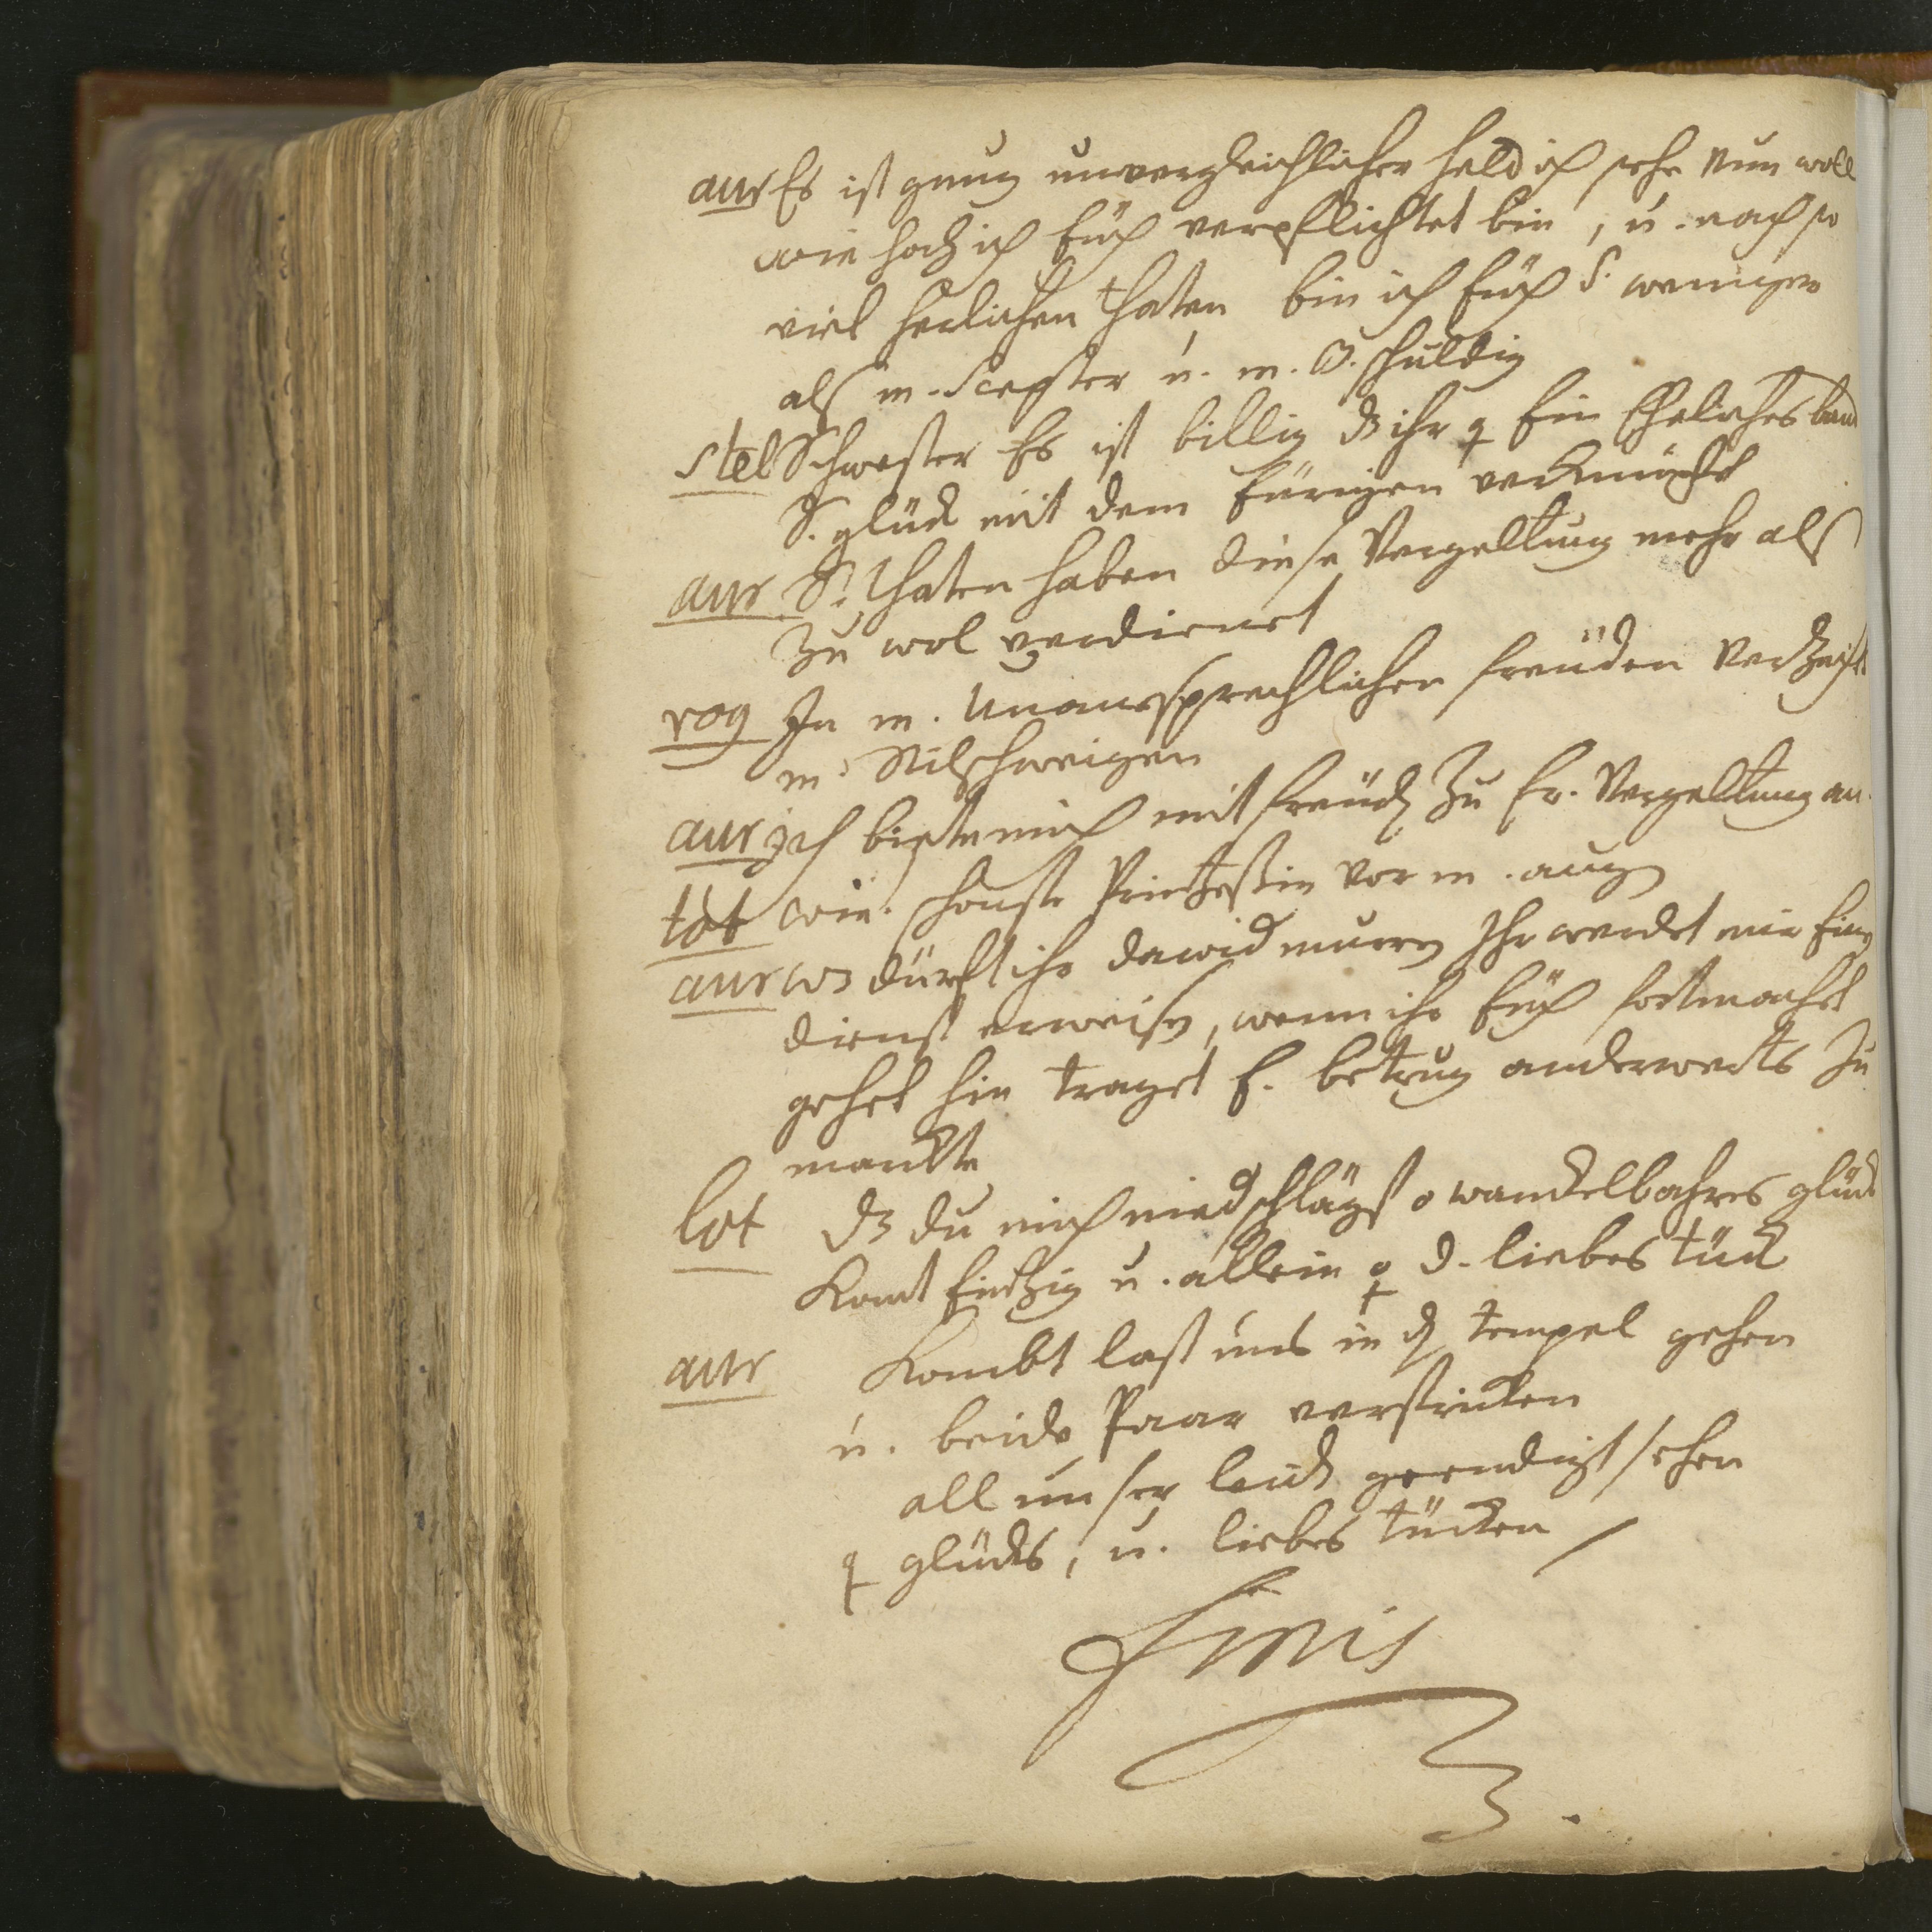 aur Es ist gnug unvergleichlicher held ich sehe nun woll
wie hoch ich Euch verpflichtet bin, u. nach so
viel herlichen thaten bin ich Euch weniger
als m. Scepter u. m. schuldig
stel Schwester Es ist billig dz ihr Ein Eheliches band
S. glück mit dem Eurigen verknüpfet
aur S. thaten haben diese Vergeltung mehr als
zu wol verdienet
rog In m. Unaussprechlichen freüden
m. Stilschweigen
aur Ich biete mich mit freud zu Er. Vergeltung an.
wie. schonste Printzessin vor m. aug
aur wz dürfft ihr dawid murren Ihr werdet mir Ein
dienst erweisen, wenn ihr Euch fortmachet
gehet hin traget E. betrug anderwerts zu
marckte
lot dz du mich niedschlägst o wandelbahres glück
Komt Eintzig u. allein d. liebes tück
aur Kombt last uns in tempel gehen
u. beide Paar verstricken
all unser leid geendigt sehen
glücks, u. liebes tücken
Finis